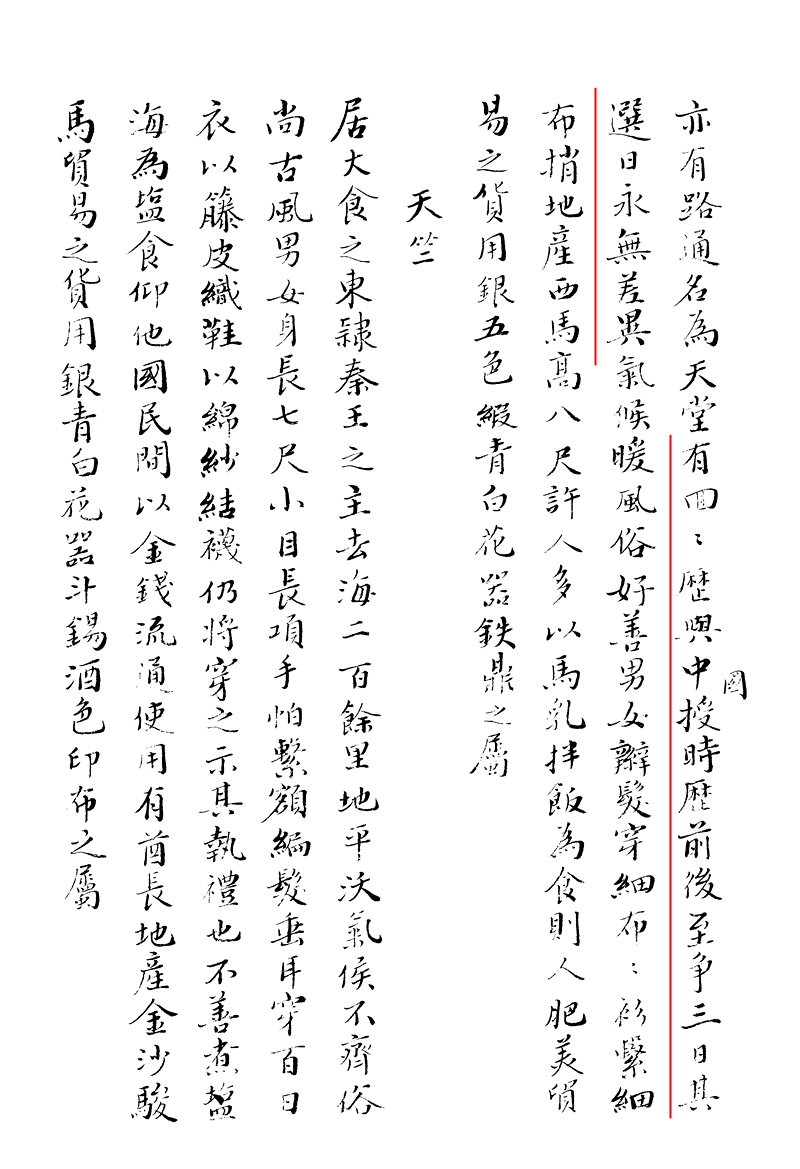 亦有路通名為天堂有囬〻歷與中國授時歷前後至爭三日其
選日永無差異氣候暖風俗好善男女辮髮穿細布〻衫繫細
布捎地產西馬高八尺許人多以馬乳拌飯為食則人肥美貿
易之貨用銀五色緞青白花器鉄鼎之屬
天竺
居大食之東隸秦王之主去海二百餘里地平沃氣候不齊俗
尚古風男女身長七尺小目長項手帕繫額編髮垂耳穿百日
衣以籐皮織鞋以綿紗結襪仍將穿之示其執禮也不善煮塩
海為塩食仰他國民間以金錢流通使用有酋長地產金沙駿
馬貿易之貨用銀青白花器斗錫酒色印布之屬